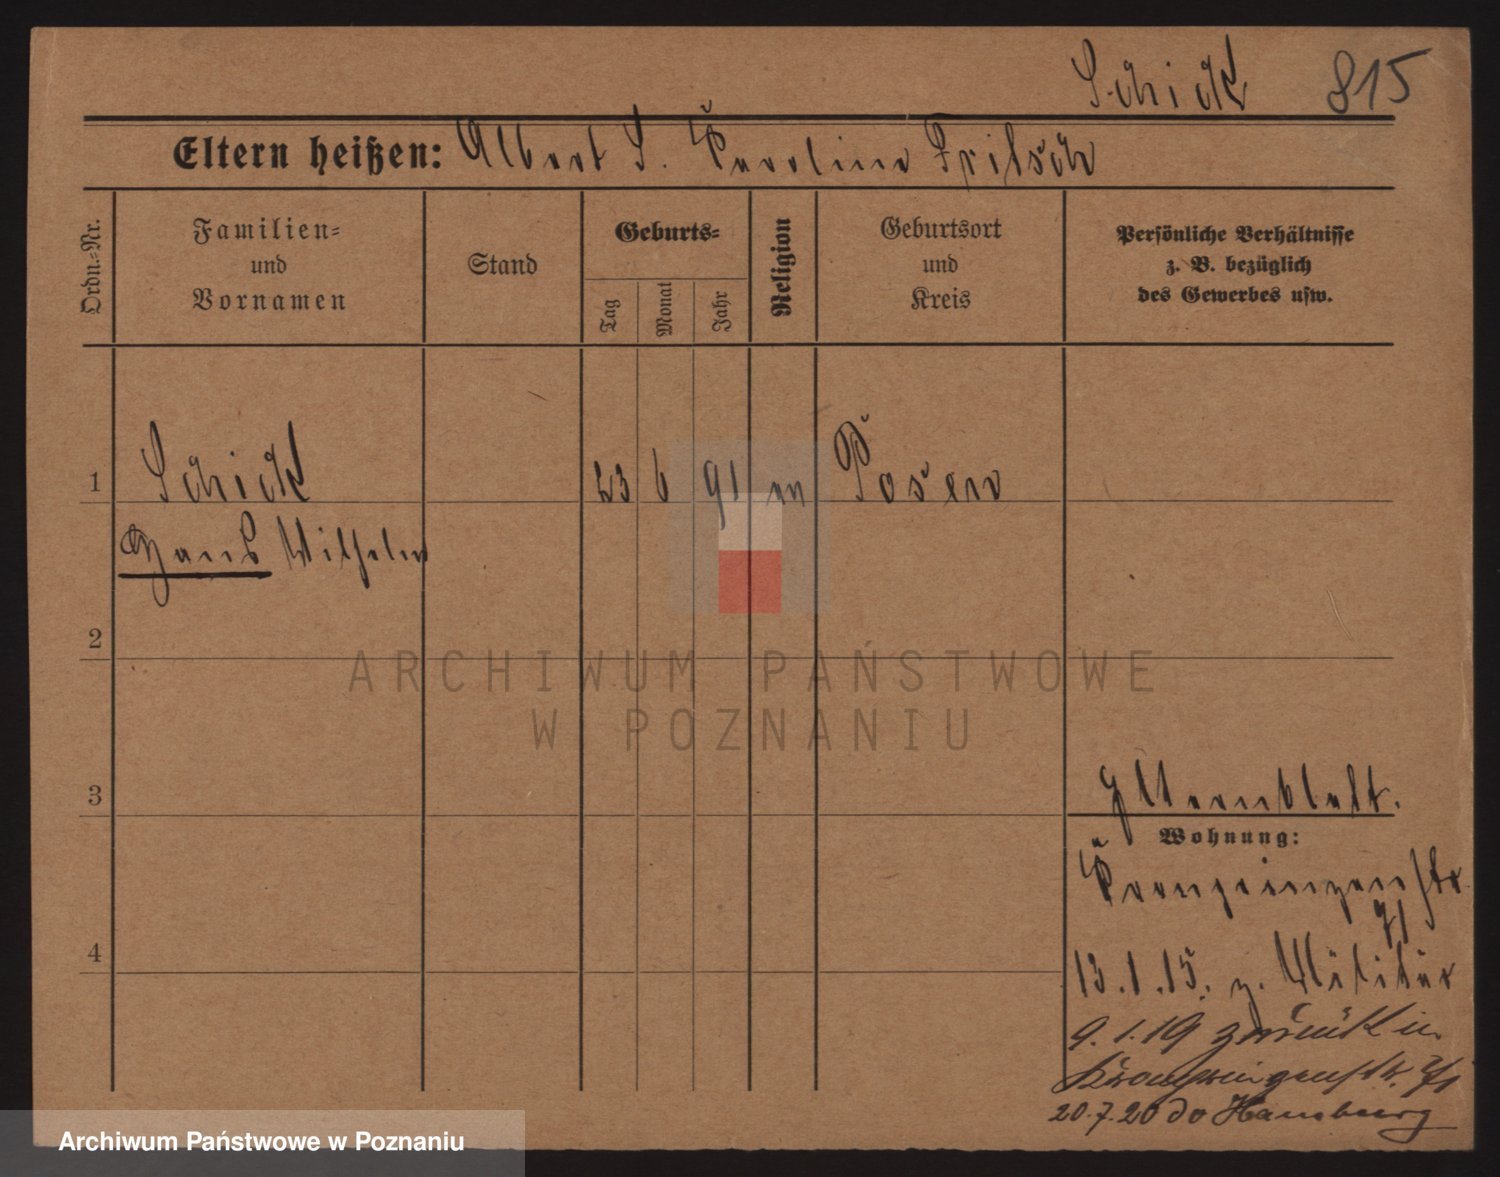 Schick 815
Eltern heißen: Albert S. Karoline Fritsch
Ordn.=Nr.
Familien=
und
Vornamen
Stand
Geburts=
Tag
Monat
Jahr
Religion
Geburtsort
und
Kreis
Persönliche Verhältnisse
z. B. bezüglich
des Gewerbes usw.
1 Schick 23 6 91 m Posen
Hans Wilhelm
2
ARCHIWUM PAŃSTWOWE
W POZNANIU
3 Elternblatt.
Wohnung:
Kronprinzenstr
71
4
13.1.15. z. Militär
9.1.19 zurück in
Kronprinzenstr. 71
20.7.20 do Hamburg
Archiwum Państwowe w Poznaniu